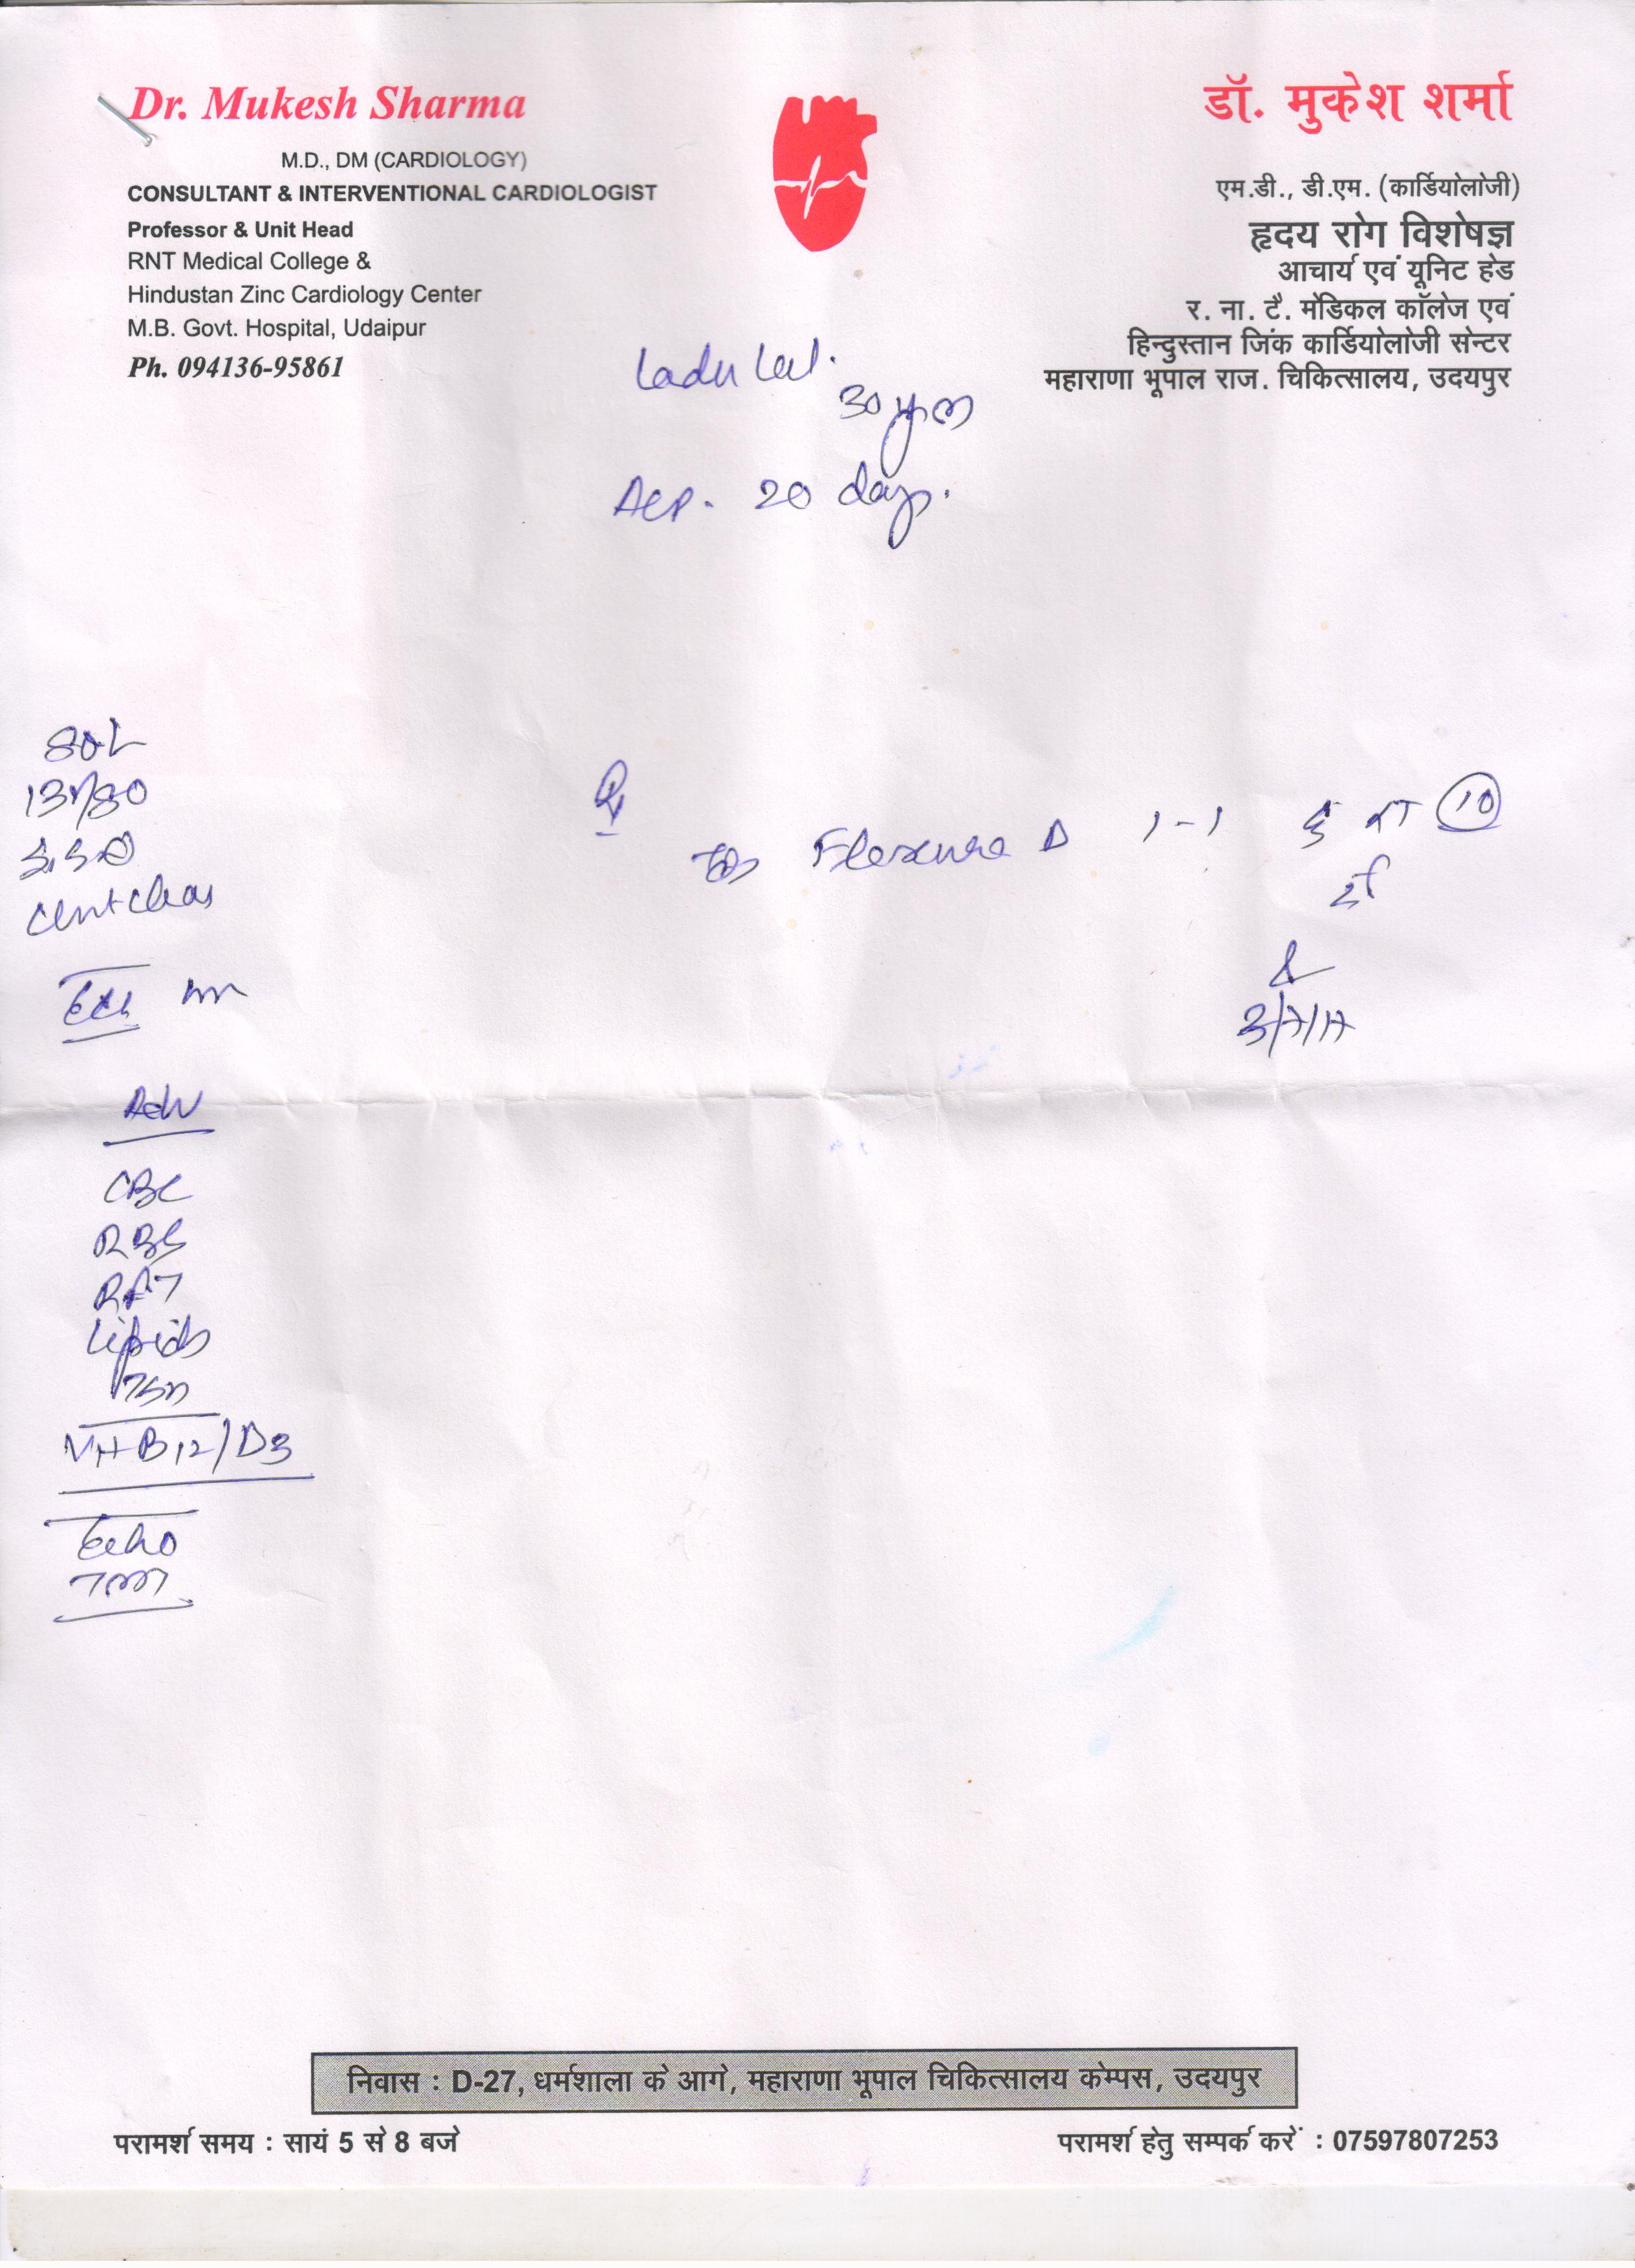 Dr. Mukesh Sharma
M.D., DM (CARDIOLOGY)
CONSULTANT & INTERVENTIONAL CARDIOLOGIST
Professor & Unit Head
RNT Medical College &
Hindustan Zinc Cardiology Center
M.B. Govt. Hospital, Udaipur
Ph. 094136-95861
डॉ. मुकेश शर्मा
एम.डी., डी.एम. (कार्डियोलोजी)
हृदय रोग विशेषज्ञ
आचार्य एवं यूनिट हेड
र. ना. टै. मेडिकल कॉलेज एवं
हिन्दुस्तान जिंक कार्डियोलोजी सेन्टर
महाराणा भूपाल राज. चिकित्सालय, उदयपुर
Ladu Lal.
30
20 days.
Rx
Flexura D 1-1 10
3/7/17
Adv
CBC
RBS
RFT
Lipids
TSH
Vit B12/D3
Echo
TMT
निवास : D-27, धर्मशाला के आगे, महाराणा भूपाल चिकित्सालय केम्पस, उदयपुर
परामर्श समय : सायं 5 से 8 बजे
परामर्श हेतु सम्पर्क करें : 07597807253